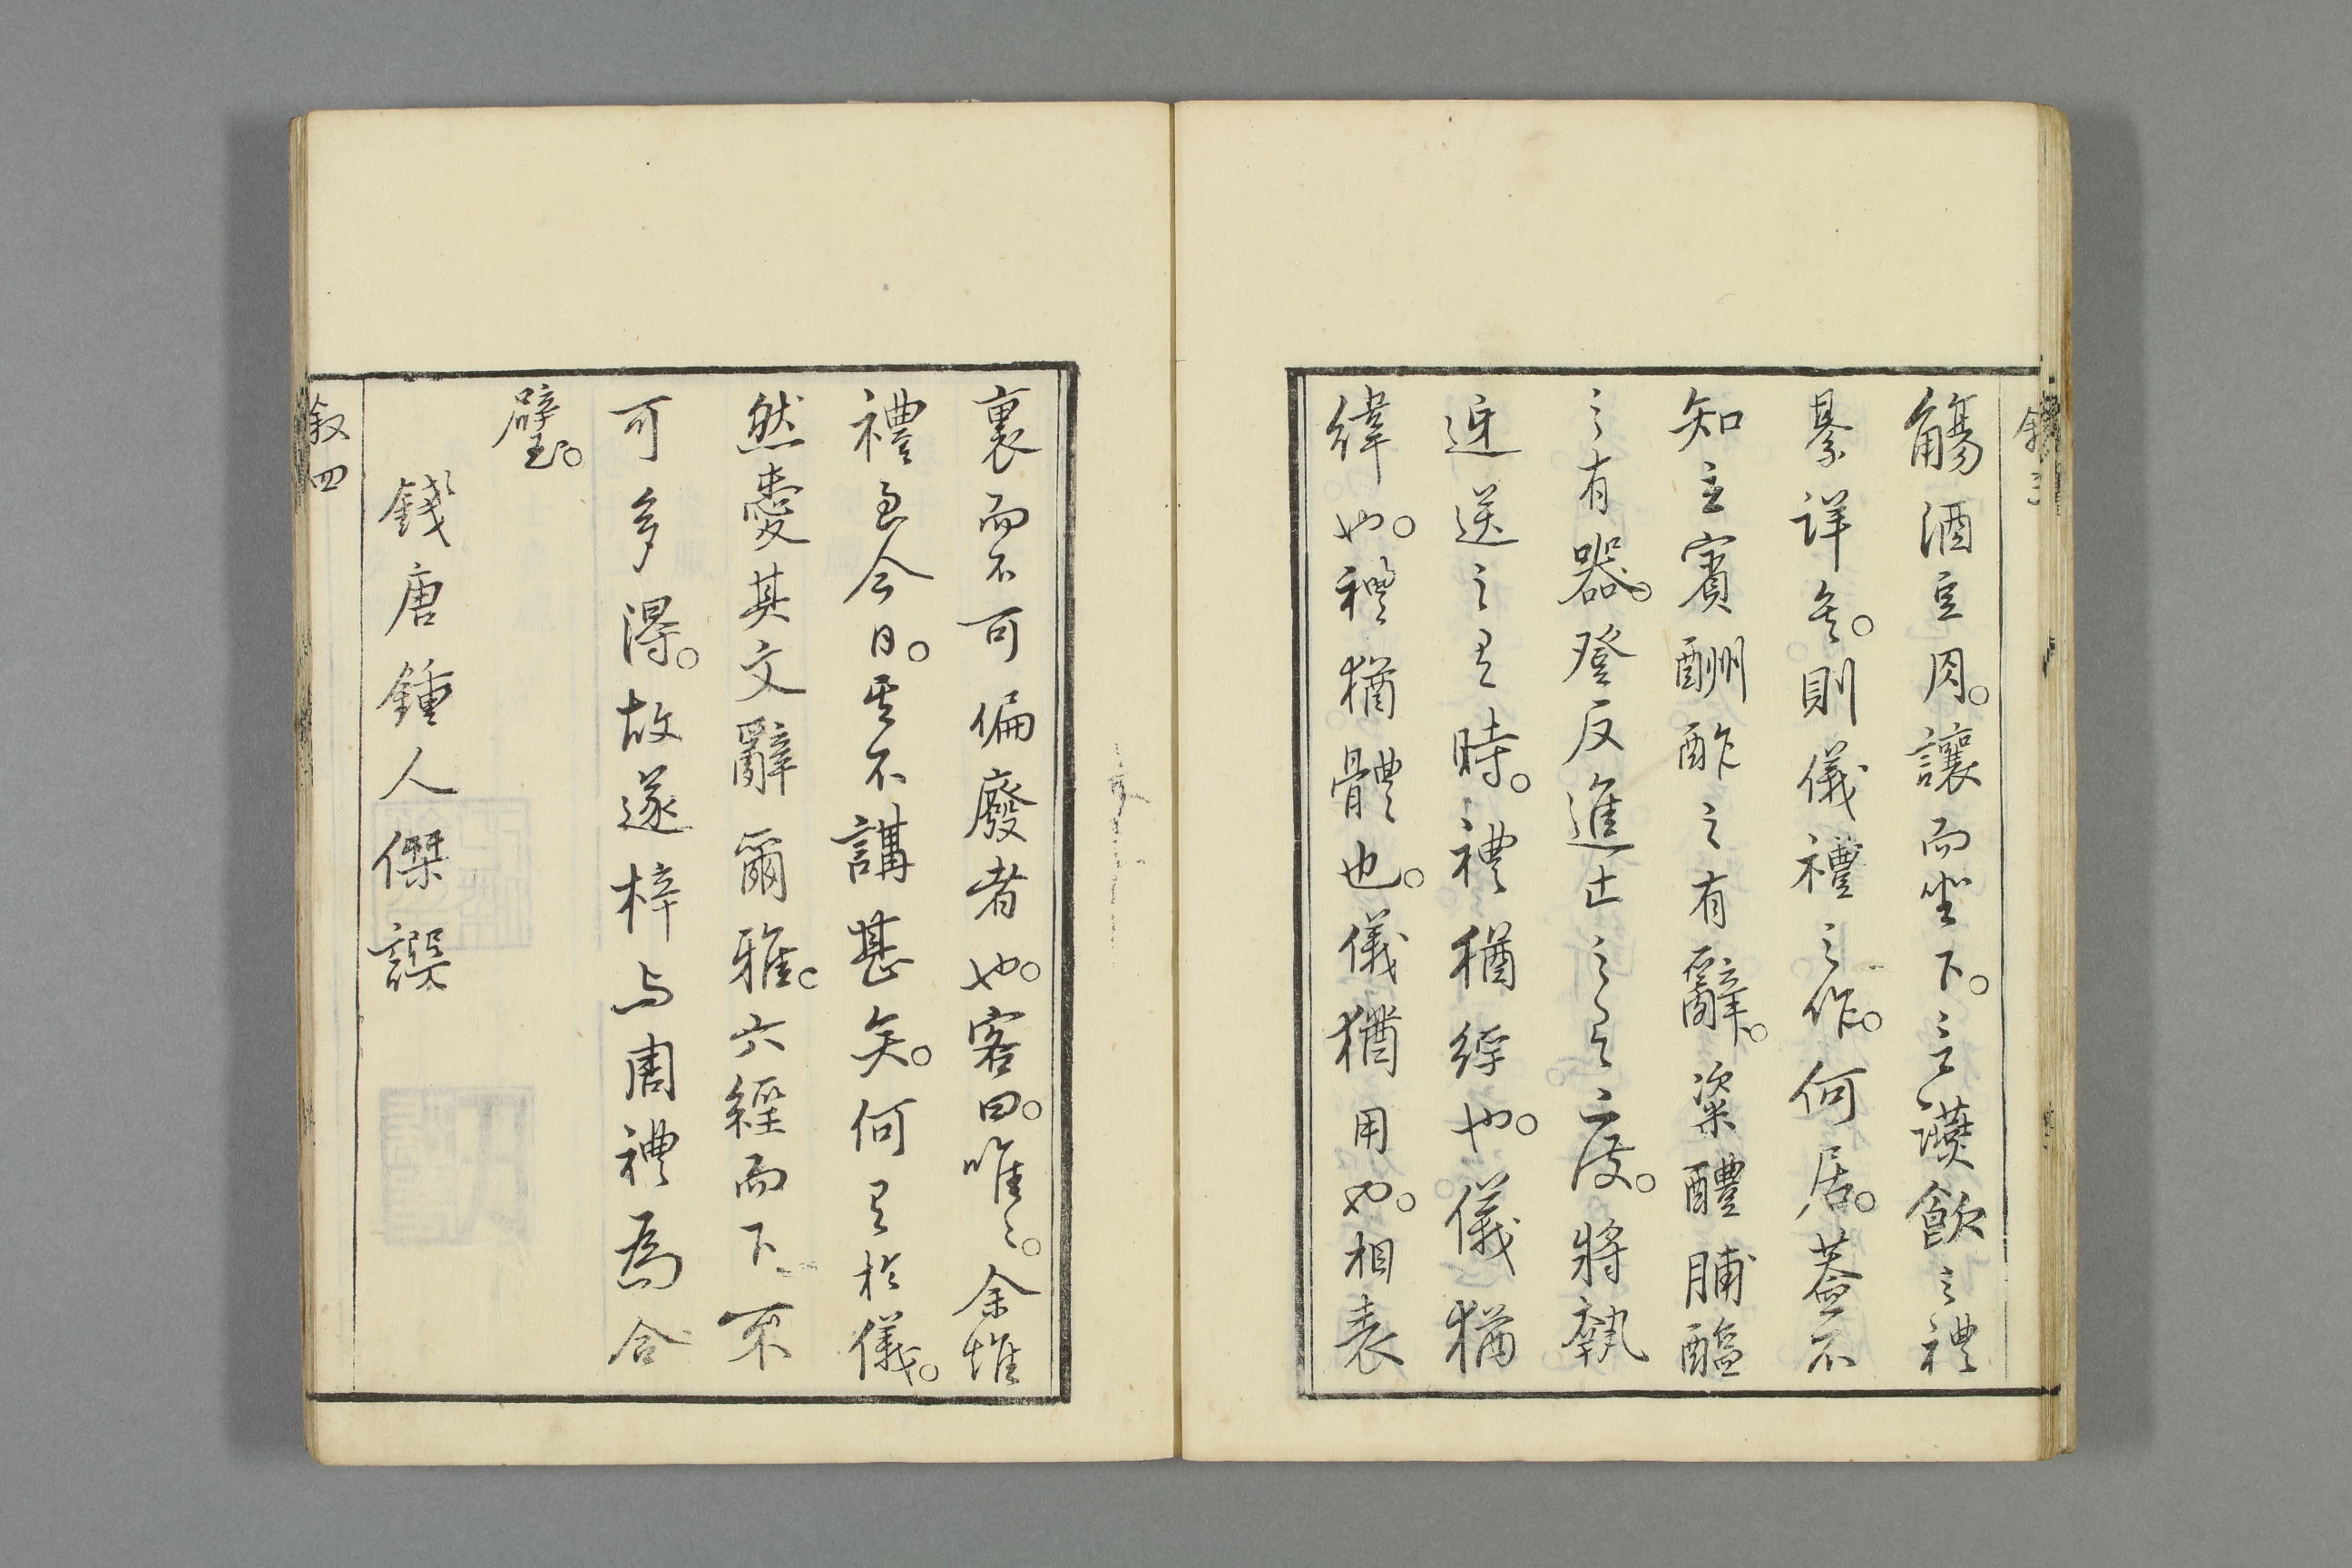 觴酒豆肉。讓而坐下。言讌飲之禮
綦詳矣。則儀禮之作。何居。葢不
知主賓酬酢之有辭。粢醴脯醢
之有器。登反進止之有度。將執
迎送之有時。禮猶經也。儀猶
緯也。禮猶體也。儀猶用也。相表
裏而不可偏廢者也。客曰。唯〻。余惟
禮至今日。其不講甚矣。何有於儀。
然愛其文辭爾雅。六經而下不
可多得。故遂梓与周禮為合
璧。
錢唐鍾人傑譔
叙四